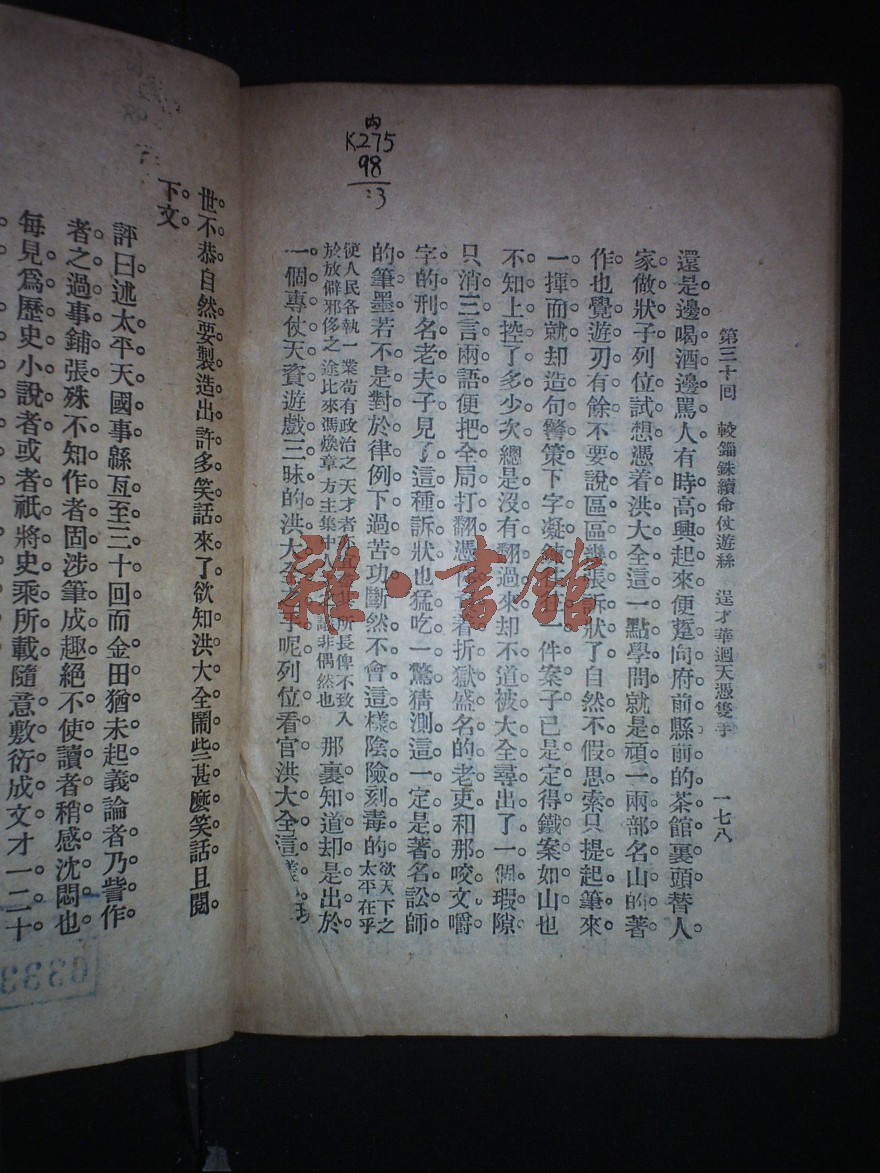 内
K275
98
:3
第三十回 較錙銖續命仗遊絲 逞才華迴天憑隻手 一七八
還是邊喝酒邊罵人有時高興起來便踅向府前縣前的茶館裏頭替人
家做狀子列位試想憑着洪大全這一點學問就是頑一兩部名山的著
作也覺遊刃有餘不要說區區幾張訴狀了自然不假思索只提起筆來
一揮而就却造句警策下字凝 一件案子已是定得鐵案如山也
不知上控了多少次總是沒有翻過來却不道被大全尋出了一個瑕隙
只消三言兩語便把全局打翻憑你 着折獄盛名的老吏和那咬文嚼
字的刑名老夫子見了這種訴狀也猛吃一驚猜測這一定是著名訟師
的筆墨若不是對於律例下過苦功斷然不會這樣陰險刻毒的欲天下之
太平在乎
使人民各執一業苟有政治之天才者 所長俾不致入
於放僻邪侈之途比來馮煥章方主集中人 非偶然也 那裏知道却是出於
一個專仗天資遊戲三昧的洪大全之手呢列位看官洪大全這 玩
世不恭自然要製造出許多笑話來了欲知洪大全鬧些甚麼笑話且閱
下文
評曰述太平天國事緜亙至三十回而金田猶未起義論者乃訾作
者之過事鋪張殊不知作者固涉筆成趣絕不使讀者稍感沈悶也
每見爲歷史小說者或者祇將史乘所載隨意敷衍成文才一二十
雜·書館